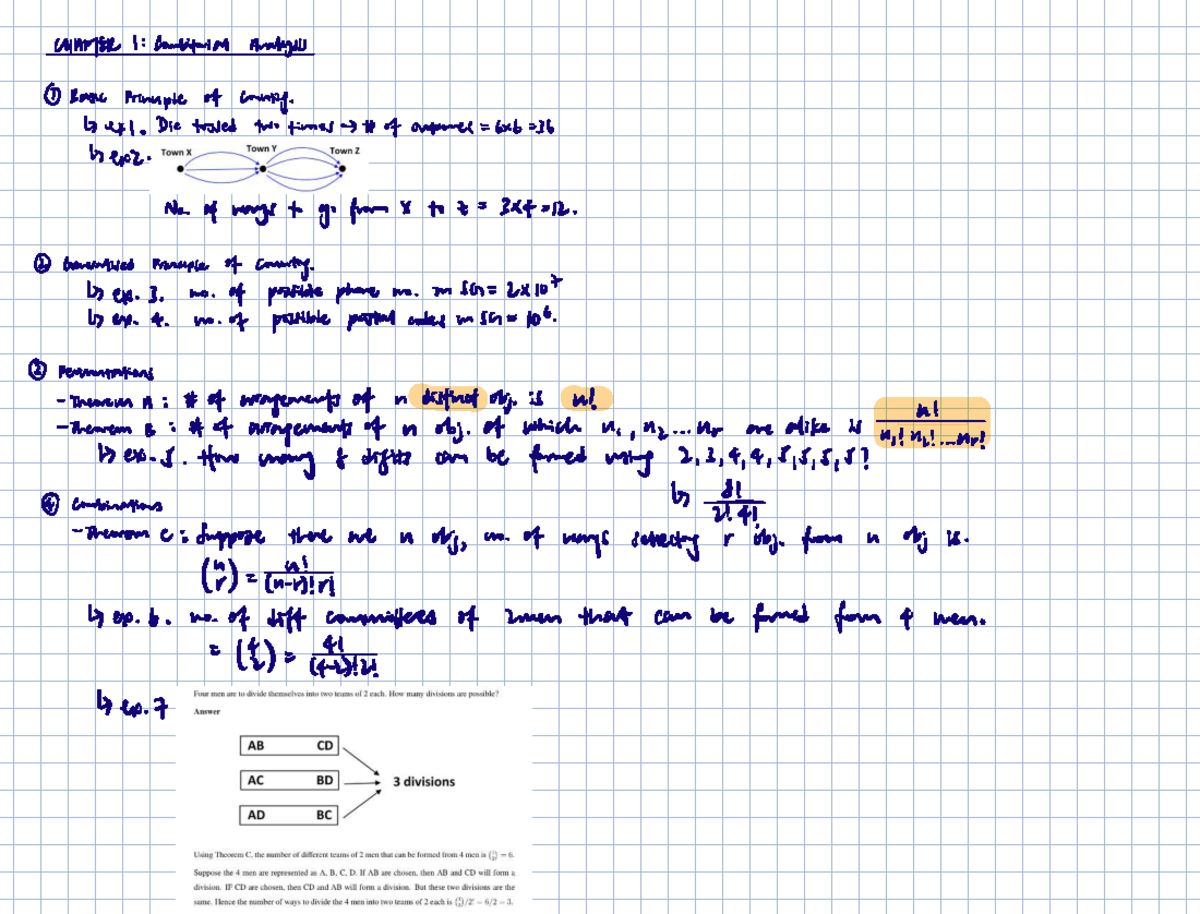 CHAPTER 1: Combinatorial Analysis
① Basic Principle of Counting.
↳ ex1. Die trolled two times → # of outcomes = 6x6 = 36
↳ exp2. Town X Town Y Town Z
No. of ways to go from X to Z = 3x4 = 12.
② Generalised Principle of Counting.
↳ ex. 3. no. of possible phone no. in SG = 2x10⁷
↳ exp. 4. no. of possible postal codes in SG = 10⁶.
③ Permutations
- Theorem A : # of arrangements of n distinct obj. is n!
- Theorem B : # of arrangements of n obj. of which n₁, n₂ ... nᵣ are alike is n! / n₁! n₂! ... nᵣ!
↳ ex. 5. How many 8 digits can be formed using 2, 3, 4, 4, 5, 5, 5, 5?
↳ 8! / 2! 4!
④ Combinations
- Theorem C : Suppose there are n obj, no. of ways selecting r obj. from n obj is.
(n r) = n! / (n-r)! r!
↳ exp. 6. no. of diff committees of 2 men that can be formed from 4 men.
= (4 2) = 4! / (4-2)! 2!
↳ exp. 7
Four men are to divide themselves into two teams of 2 each. How many divisions are possible?
Answer
AB CD
AC BD 3 divisions
AD BC
Using Theorem C, the number of different teams of 2 men that can be formed from 4 men is (4 2) = 6.
Suppose the 4 men are represented as A, B, C, D. If AB are chosen, then AB and CD will form a
division. IF CD are chosen, then CD and AB will form a division. But these two divisions are the
same. Hence the number of ways to divide the 4 men into two teams of 2 each is (4 2)/2! = 6/2 = 3.